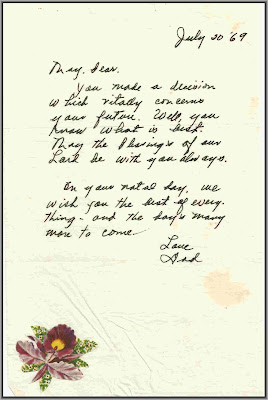 July 20 '69
May, dear.
You made a decision
which vitally concerns
your future. Well, you
know what is best.
May the blessings of our
Lord be with you always.
On your natal day, we
wish you the best of every
thing - and the day's many
more to come.
Love
Dad